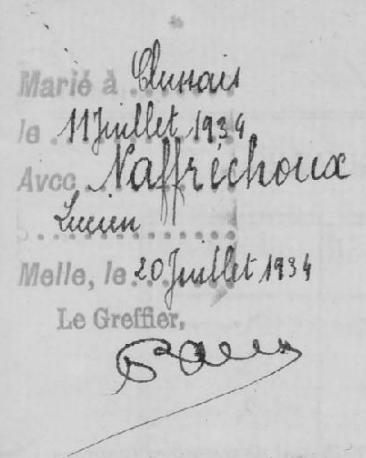 Marié à Clussais
le 11 Juillet 1934
Avec Naffréchoux
Lucien
Melle, le 20 Juillet 1934
Le Greffier,